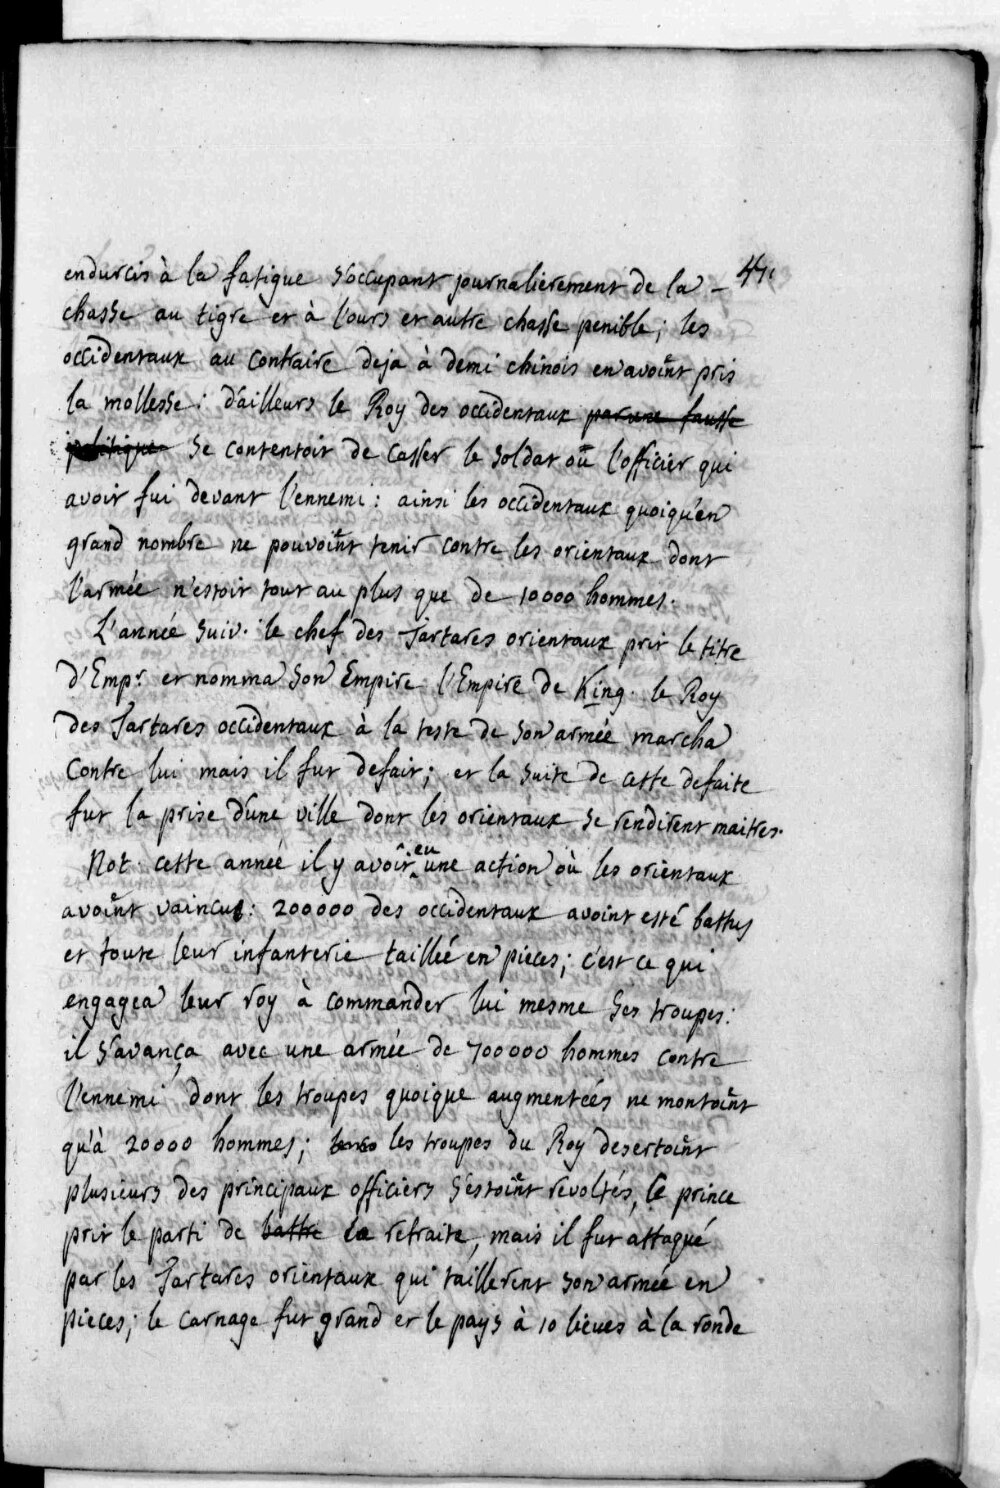 endurcis à la fatigue s'occupant journalierement de la – 47.
chasse au tigre et à l'ours et autre chasse penible; les
occidentaux au contraire deja à demi chinois en avoint pris
la mollesse: d'ailleurs le Roy des occidentaux par une fausse
politique se contentoit de casser le soldat où l'officier qui
avoit fui devant l'ennemi: ainsi les occidentaux quoiqu'en
grand nombre ne pouvoint tenir contre les orientaux dont
l'armée n'estoit tout au plus que de 10000 hommes.
L'année suiv. le chef des Tartares orientaux prit le titre
d'Empr. et nomma son Empire l'Empire de King. le Roy
des Tartares occidentaux à la teste de son armée marcha
contre lui mais il fut defait; et la suite de cette defaite
fut la prise d'une ville dont les orientaux se rendirent maitres.
Not. cette année il y avoit eu une action où les orientaux
avoint vaincus: 200000 des occidentaux avoint esté battus
et toute leur infanterie taillée en pieces; c'est ce qui
engagea leur roy à commander lui mesme ses troupes:
il s'avança avec une armée de 700000 hommes contre
l'ennemi dont les troupes quoique augmentées ne montoint
qu'à 20000 hommes; les troupes du Roy desertoint
plusieurs des principaux officiers s'estoint revoltés, le prince
prit le parti de battre la retraite, mais il fut attaqué
par les Tartares orientaux qui taillerent son armée en
pieces; le carnage fut grand et le pays à 10 lieues à la ronde